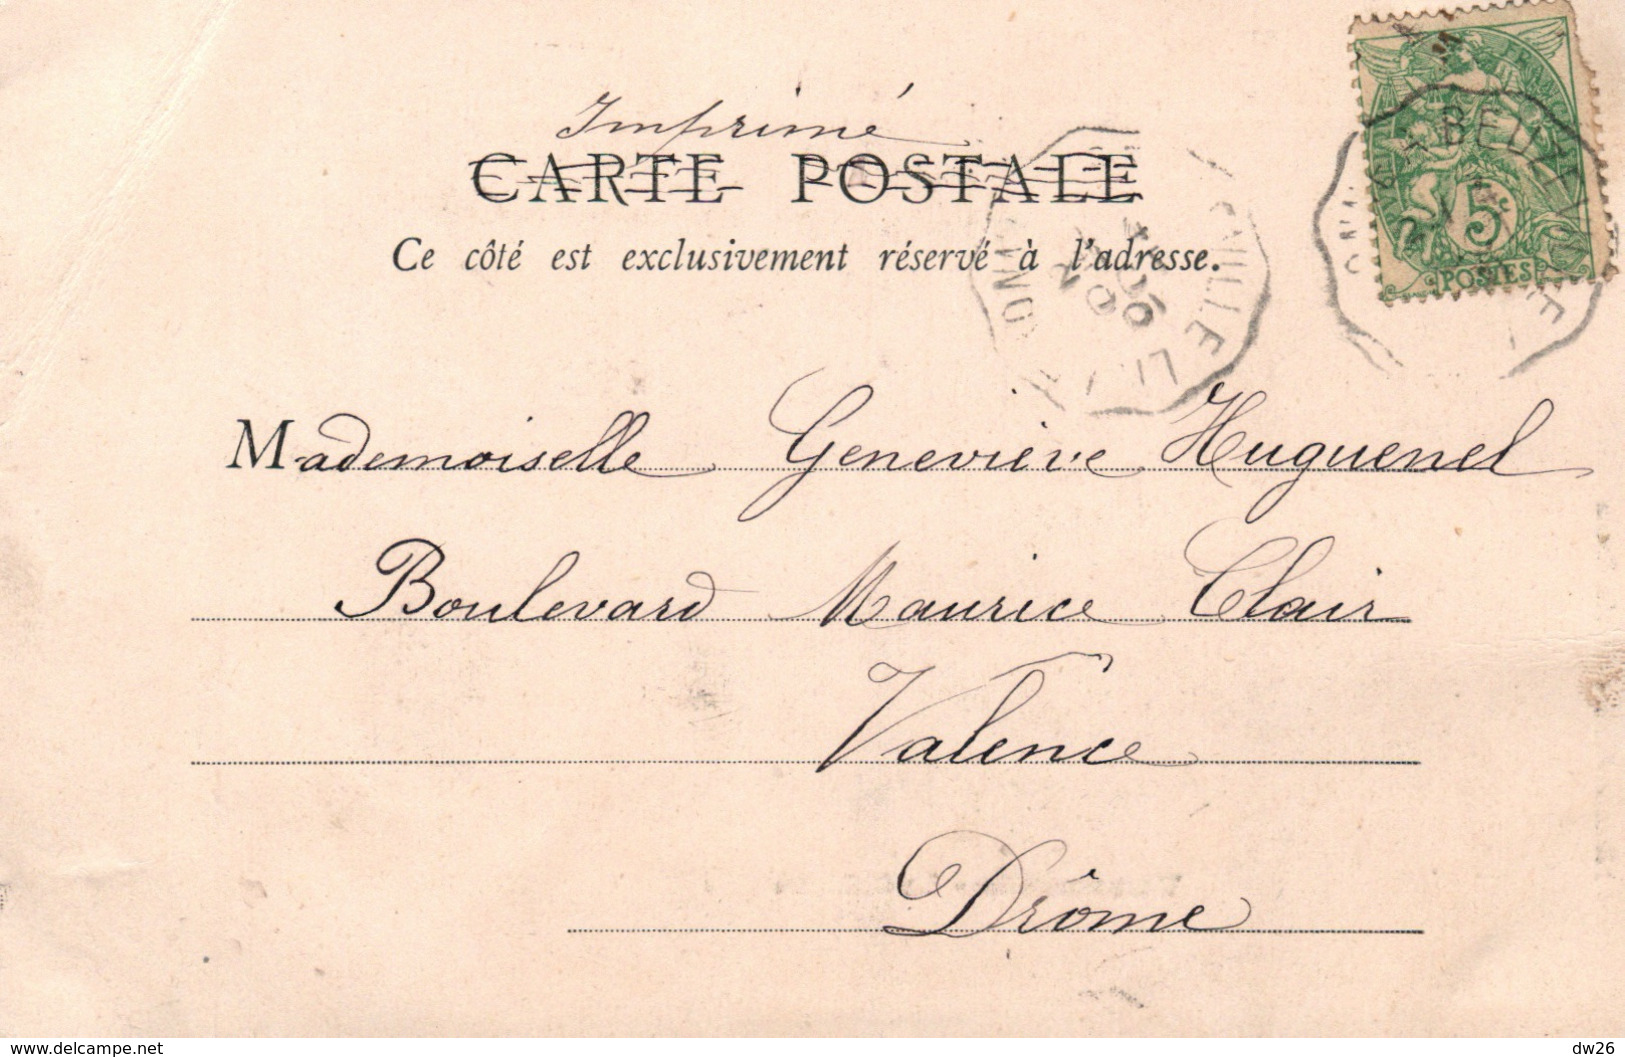 Imprimé
CARTE POSTALE
Ce côté est exclusivement réservé à l'adresse.
BEUZEV
5c
POSTES
VILLE
Mademoiselle Geneviève Huguenel
Boulevard Maurice Clair
Valence
Drôme
www.delcampe.net
dw26